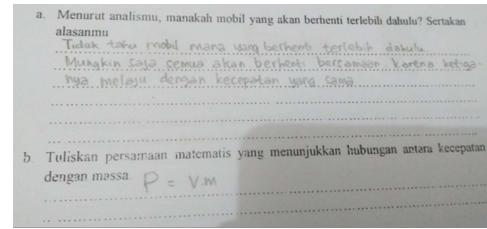 a. Menurut analismu, manakah mobil yang akan berhenti terlebih dahulu? Sertakan
alasanmu
Tidak tahu mobil mana yang berhenti terlebih dahulu.
Mungkin saja semua akan berhenti bersamaan karena ketiga-
nya melaju dengan kecepatan yang sama
b. Tuliskan persamaan matematis yang menunjukkan hubungan antara kecepatan
dengan massa P = V.m